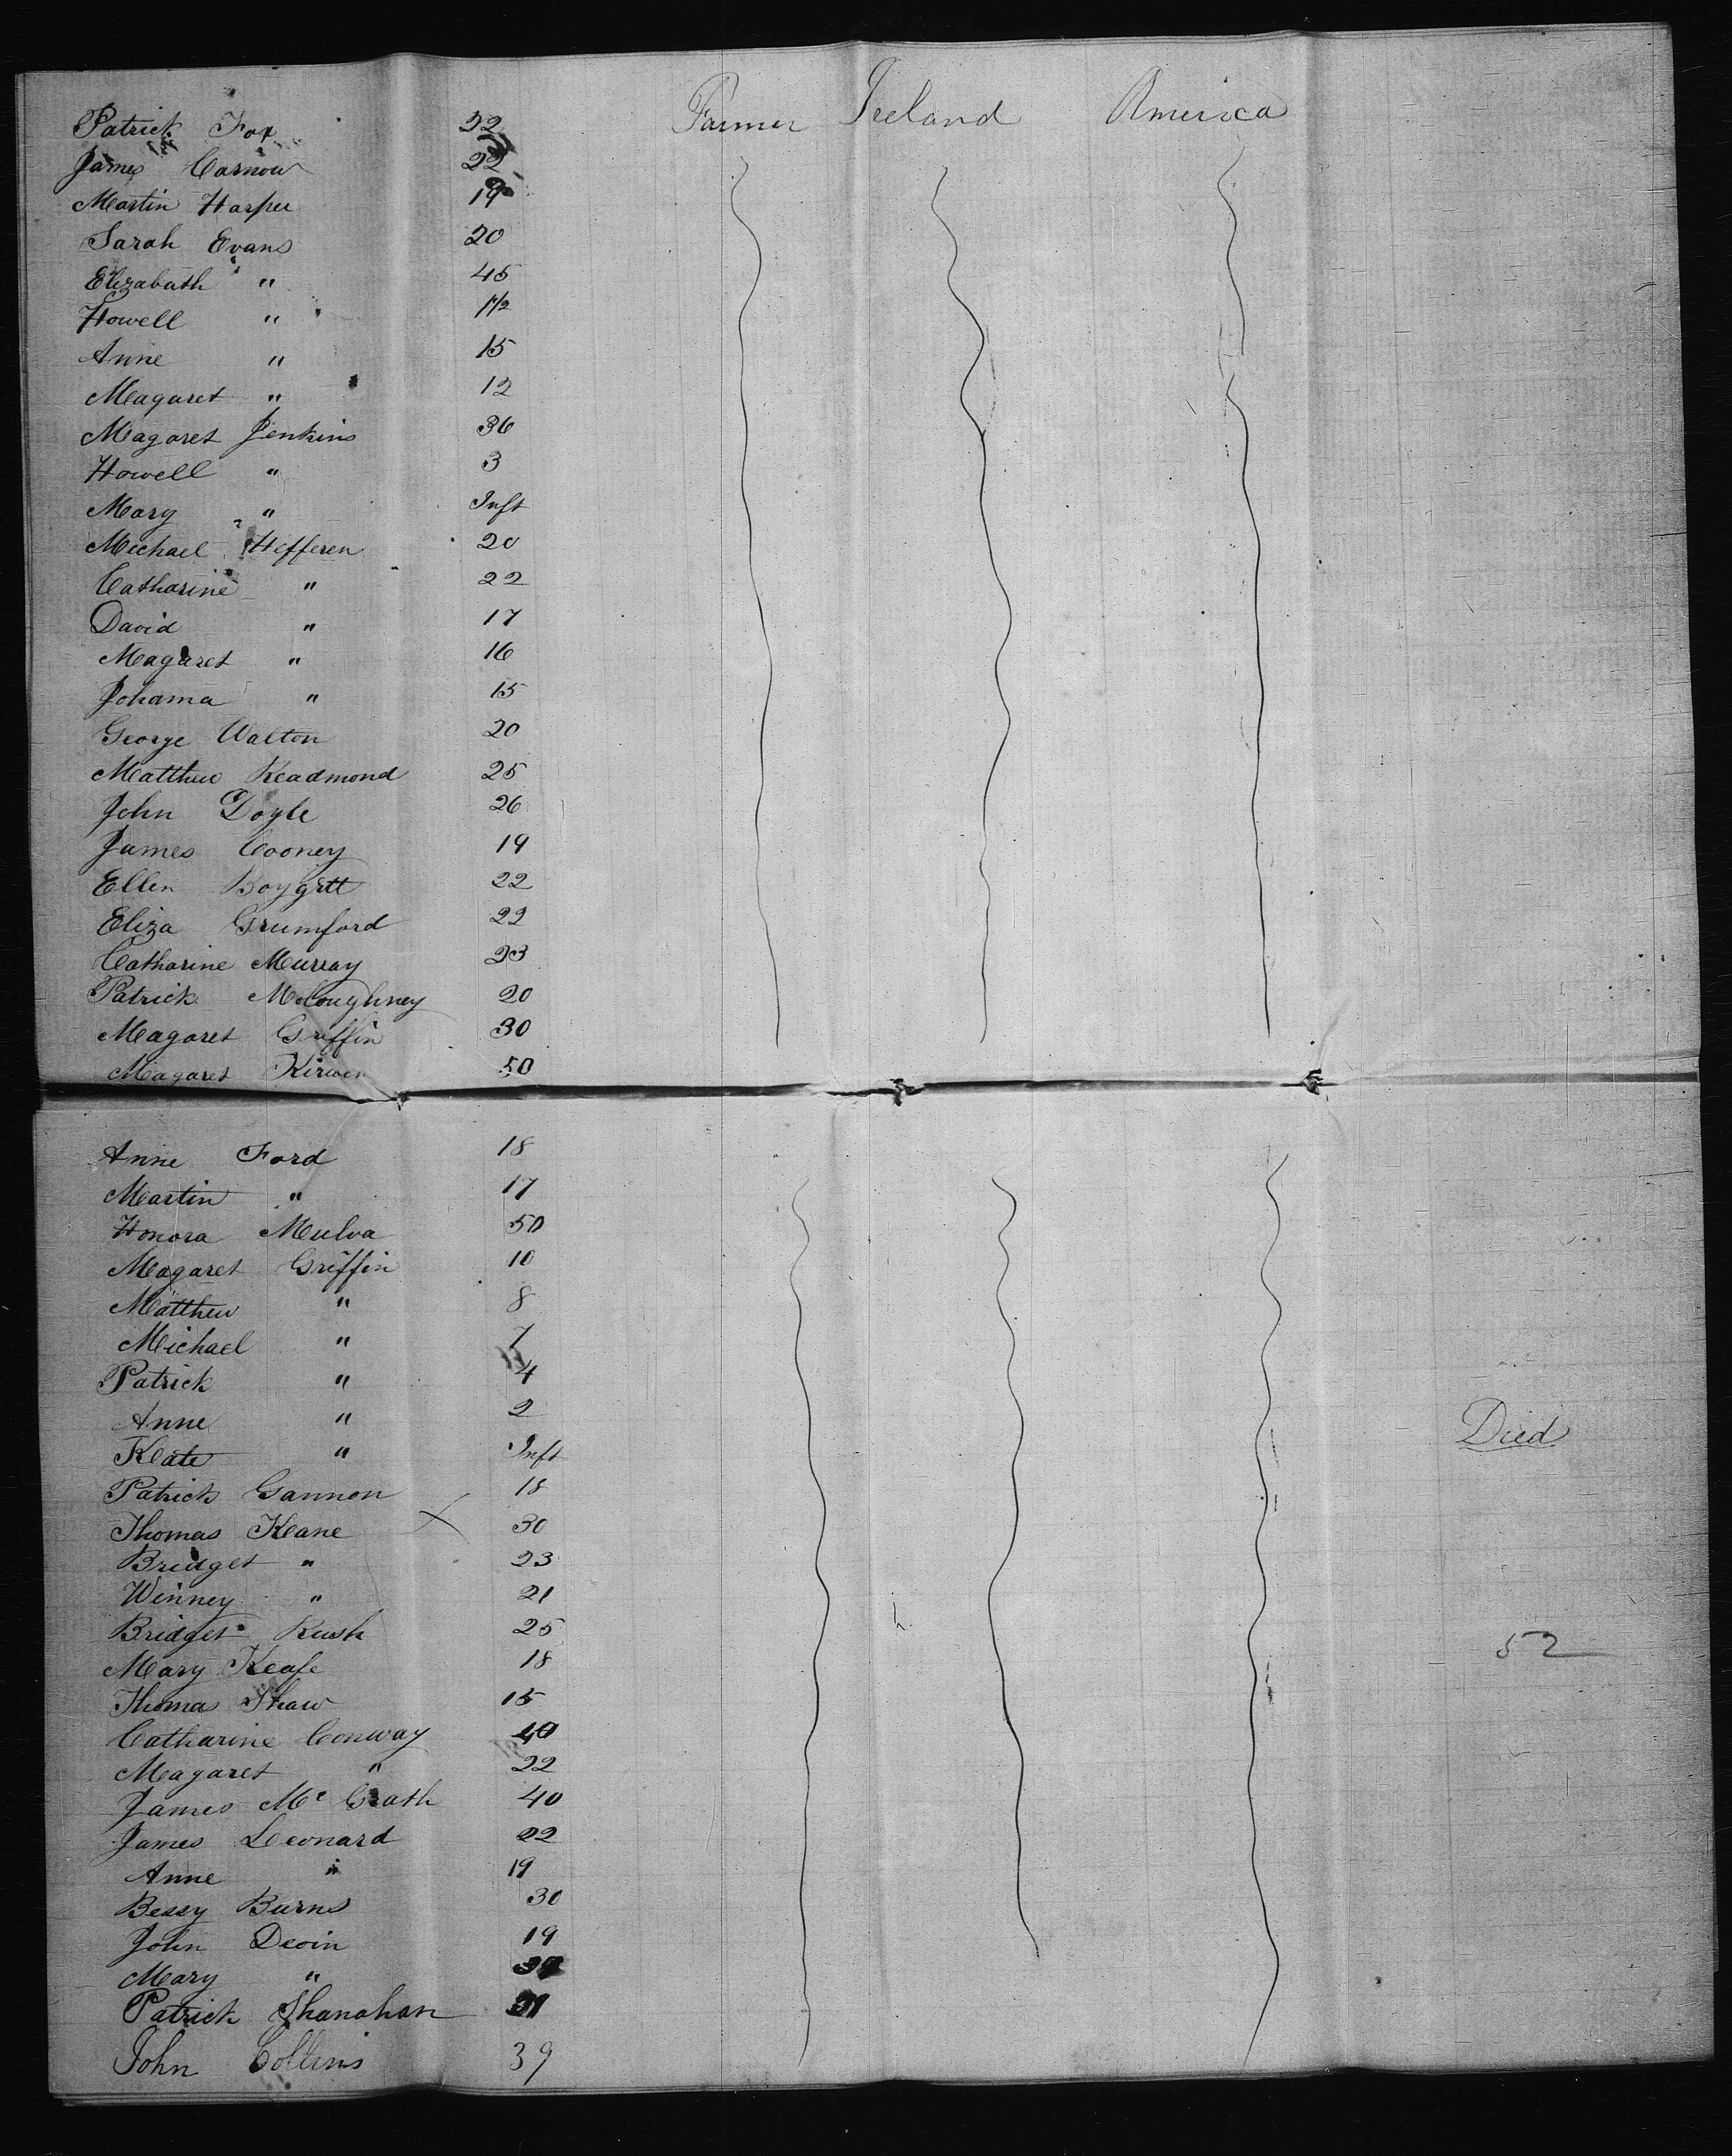 Patrick Fox 22 Farmer Ireland America
James Carnow 22
Martin Harper 19
Sarah Evans 20
Elizabath " 45
Howell " 1 1/2
Anne " 15
Magaret " 12
Magaret Jenkins 36
Howell " 3
Mary " Inft
Michael Hefferen 20
Catharine " 22
David " 17
Magaret " 16
Johanna " 15
George Walton 20
Matthew Readmond 25
John Doyle 26
James Cooney 19
Ellen 22
Eliza Grumford 22
Catharine Murray 23
Patrick McCoughney 20
Magaret Griffin 30
Magaret Kirwen 50
Anne Ford 18
Martin " 17
Honora Mulva 50
Magaret Griffin 10
Matthew " 8
Michael " 7
Patrick " 4
Anne " 2 Died
Kate " Inft
Patrick Gannon 18
Thomas Keane X 30
Bridget " 23
Winney " 21
Bridget Rush 25 52
Mary Keafe 18
Thomas Shaw 15
Catharine Conway 40
Magaret " 22
James Mc Grath 40
James Leonard 22
Anne " 19
Bessy Burns 30
John Devin 19
Mary "
Patrick Shanahan 21
John Collins 39